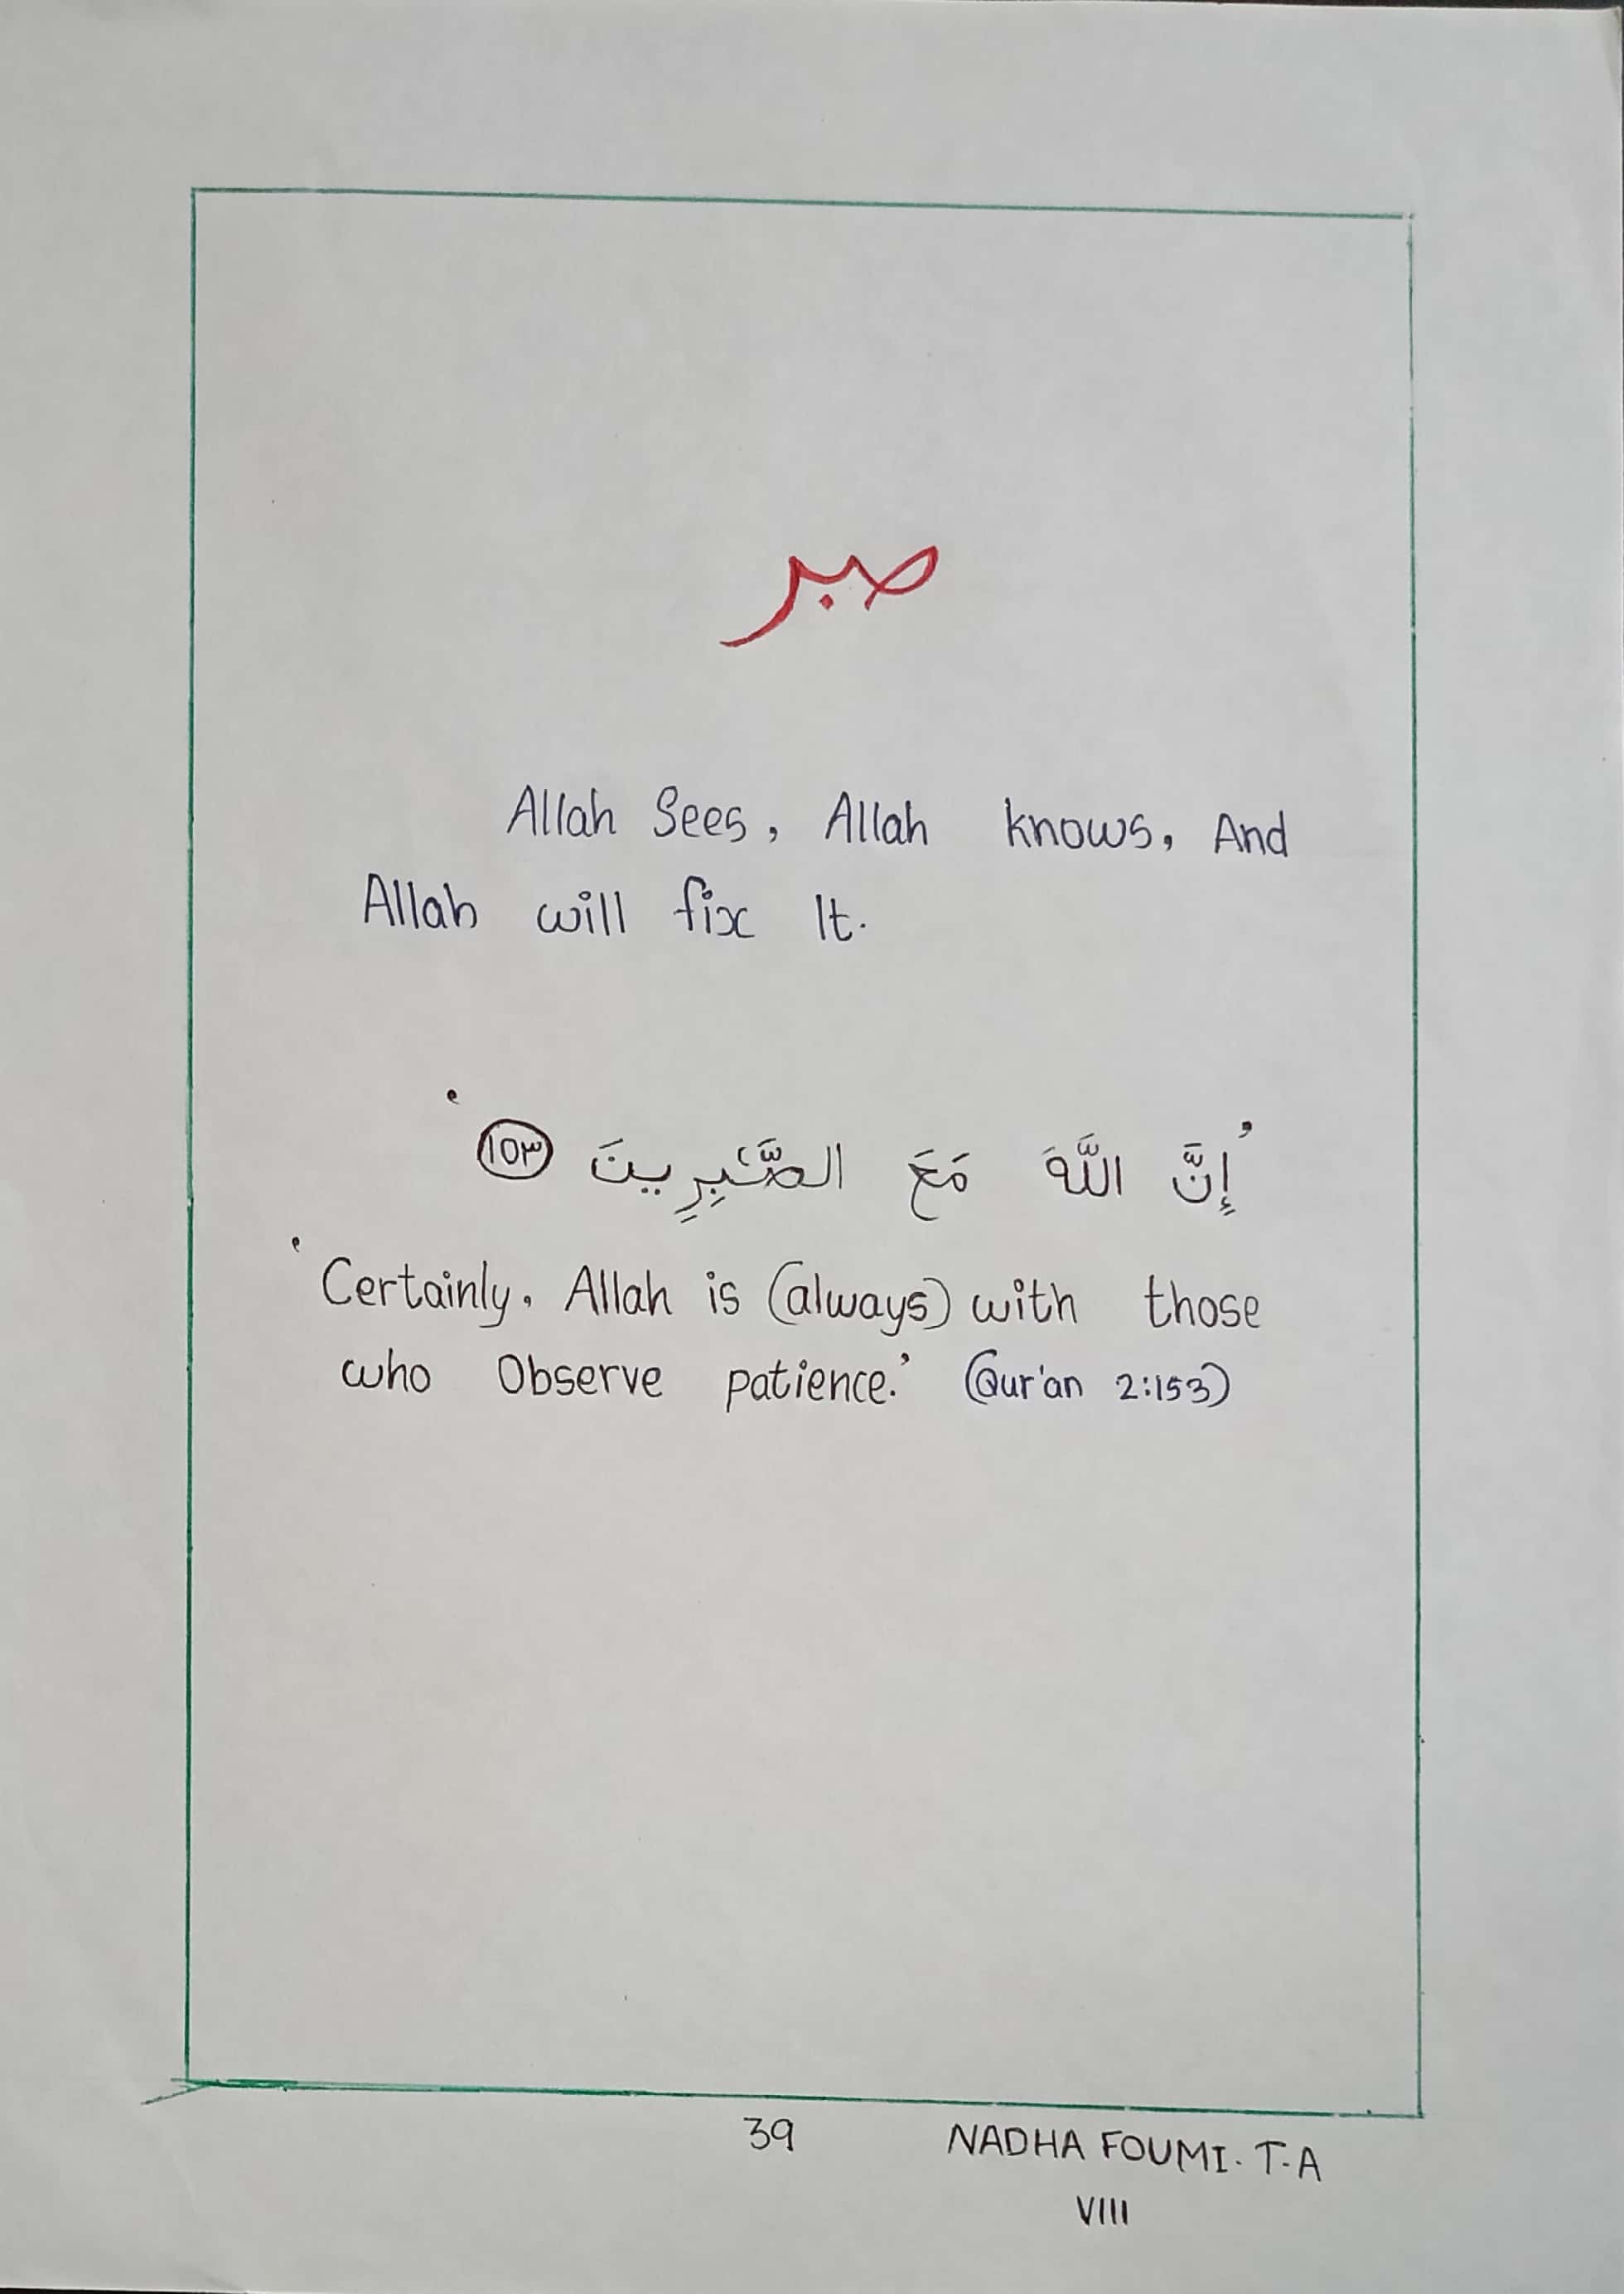 صبر
Allah Sees, Allah knows, And
Allah will fix It.
'إِنَّ اللَّهَ مَعَ الصَّٰبِرِينَ ١٥٣'
'Certainly, Allah is (always) with those
who Observe patience.' (Qur'an 2:153)
39 NADHA FOUMI. T.A
VIII